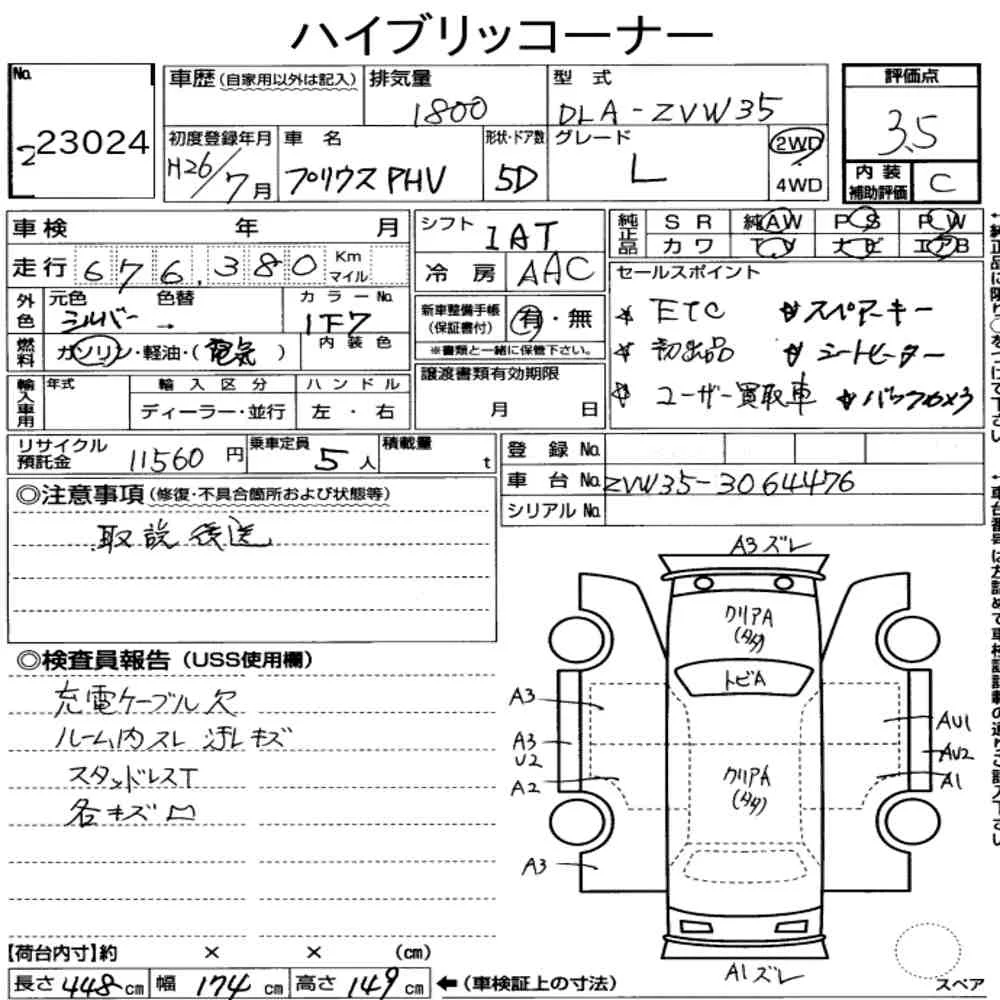 ハイブリッコーナー
No. 223024
車歴(自家用以外は記入) 排気量 1800 型式 DLA-ZVW35
初度登録年月 H26/7月 車名 プリウスPHV 形状・ドア数 5D グレード L 2WD 4WD
評価点 3.5
内装補助評価 C
車検 年 月
走行 676,380 Km マイル
シフト IAT
冷房 AAC
純正品 SR 純AW PS PW
カワ TV ナビ エアB
外色 元色 シルバー 色替 → カラーNo. 1F7
燃料 ガソリン・軽油・(電気) 内装色
新車整備手帳(保証書付) 有・無
※書類と一緒に保管下さい。
セールスポイント
ETC スペアーキー
初出品 シートヒーター
ユーザー買取車 バックカメラ
輸入車用 年式 輸入区分 ディーラー・並行 ハンドル 左・右
譲渡書類有効期限 月 日
リサイクル預託金 11560円 乗車定員 5人 積載量 t
登録No.
車台No. ZVW35-3064476
シリアルNo.
◎注意事項(修復・不具合箇所および状態等)
取説後送
◎検査員報告(USS使用欄)
充電ケーブル欠
ルーム内スレ 汚レキズ
スタッドレスT
各キズ凹
A3ズレ
クリアA
(タタ)
トビA
A3
A3
U2
A2
A3
クリアA
(タタ)
AU1
AU2
A1
A1ズレ
スペア
【荷台内寸】約 × × (cm)
長さ 448cm 幅 174cm 高さ 149cm ←(車検証上の寸法)